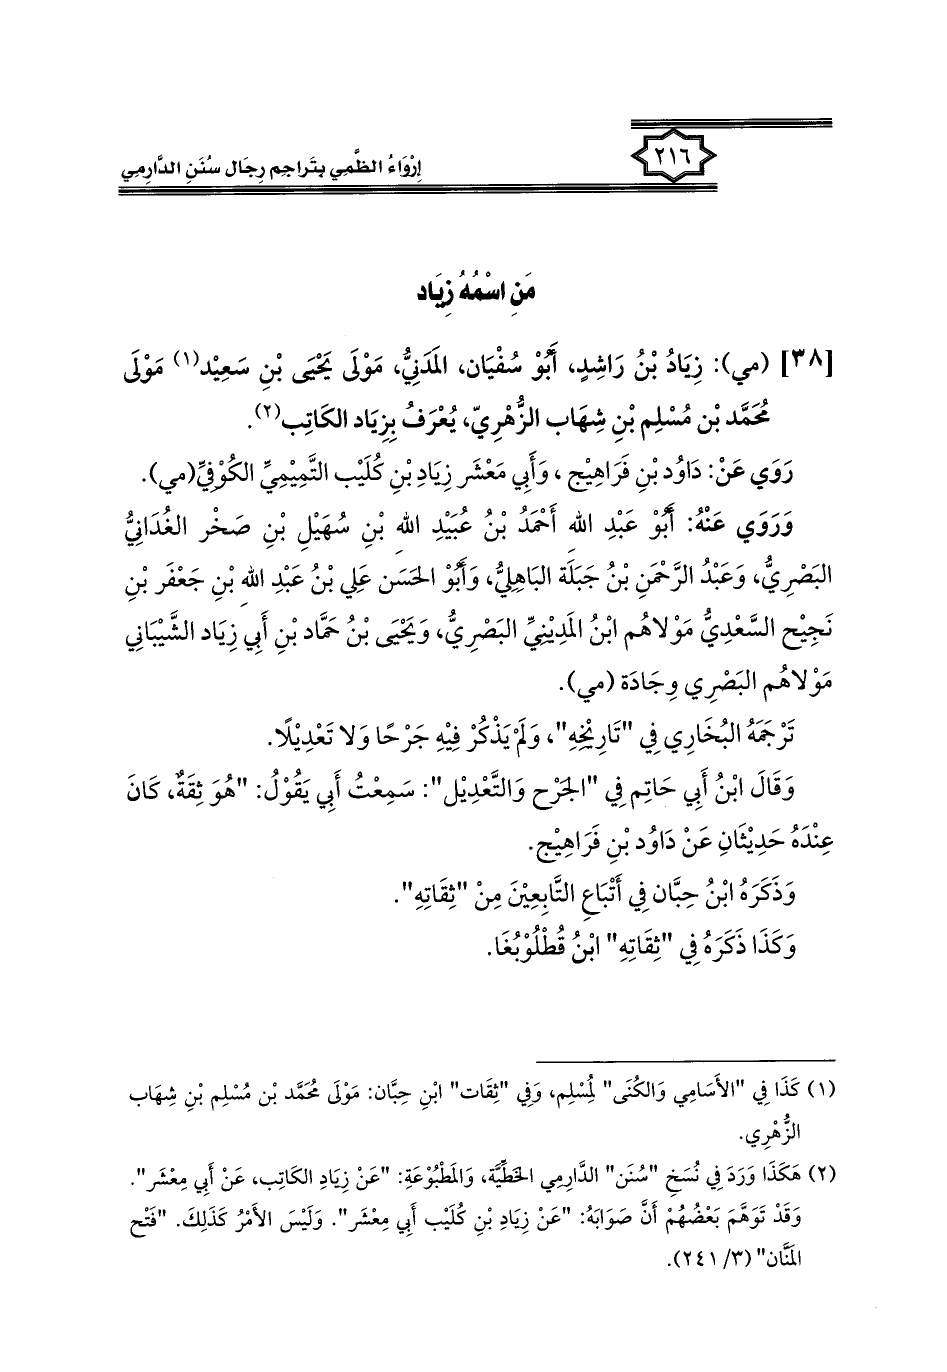 ٢١٦
إِرْوَاءُ الظَّمِي بتَراجم رِجَال سُنَنِ الدَّارِمِي
مَنِ اسْمُهُ زِيَاد
[٣٨] (مي): زِيَادُ بْنُ رَاشِدٍ، أَبُوْ سُفْيَان، المَدَنِيُّ، مَوْلَى يَحْيَى بْنِ سَعِيْد(١) مَوْلَى
مُحَمَّد بْن مُسْلِم بْنِ شِهَاب الزُّهْرِيّ، يُعْرَفُ بِزِيَاد الكَاتِب(٢).
رَوَي عَنْ: دَاوُد بْنِ فَرَاهِيْج، وَأَبي مَعْشَر زِيَادِ بْنِ كُلَيْب التَّمِيْمِيِّ الكُوْفِيِّ (مي).
وَرَوَي عَنْهُ: أَبُوْ عَبْدِ الله أَحْمَدُ بْنُ عُبَيْدِ الله بْنِ سُهَيْلِ بْنِ صَخْر الغُدَانيُّ
البَصْرِيُّ، وَعَبْدُ الرَّحْمَنِ بْنُ جَبَلَة البَاهِليُّ، وَأَبُوْ الحَسَن عَلِي بْنُ عَبْدِ الله بْنِ جَعْفَر بْنِ
نَجِيْح السَّعْدِيُّ مَوْلاهُم ابْنُ المَدِيْنِيّ البَصْرِيُّ، وَيَحْيَى بْنُ حَمَّاد بْنِ أَبي زِيَاد الشَّيْبَاني
مَوْلاهُم البَصْرِي وِجَادَة (مي).
تَرْجَمَهُ البُخَارِي فِي "تَارِيْخِهِ"، وَلَمْ يَذْكُرْ فِيْهِ جَرْحًا وَلا تَعْدِيْلًا.
وَقَالَ ابْنُ أَبي حَاتِم فِي "الجَرْح وَالتَّعْدِيْل": سَمِعْتُ أَبي يَقُوْلُ: "هُوَ ثِقَةٌ، كَانَ
عِنْدَهُ حَدِيْثَانِ عَنْ دَاوُد بْنِ فَرَاهِيْج.
وَذَكَرَهُ ابْنُ حِبَّان فِي أَتْبَاعِ التَّابِعِيْنَ مِنْ "ثِقَاتِهِ".
وَكَذَا ذَكَرَهُ فِي "ثِقَاتِهِ" ابْنُ قُطْلُوْبُغَا.
(١) كَذَا فِي "الأَسَامِي وَالكُنَى" لِمُسْلِم، وَفِي "ثِقَات" ابْنِ حِبَّان: مَوْلَى مُحَمَّد بْن مُسْلِم بْنِ شِهَاب
الزُّهْرِي.
(٢) هَكَذَا وَرَدَ فِي نُسَخِ "سُنَن" الدَّارِمي الخَطِّيَّة، وَالمَطْبُوْعَةِ: "عَنْ زِيَادِ الكَاتِب، عَنْ أَبي مِعْشَر".
وَقَدْ تَوَهَّمَ بَعْضُهُمْ أَنَّ صَوَابَهُ: "عَنْ زِيَادِ بْنِ كُلَيْب أَبي مِعْشَر". وَلَيْسَ الأَمْرُ كَذَلِكَ. "فَتْح
المَنَّان" (٣/ ٢٤١).